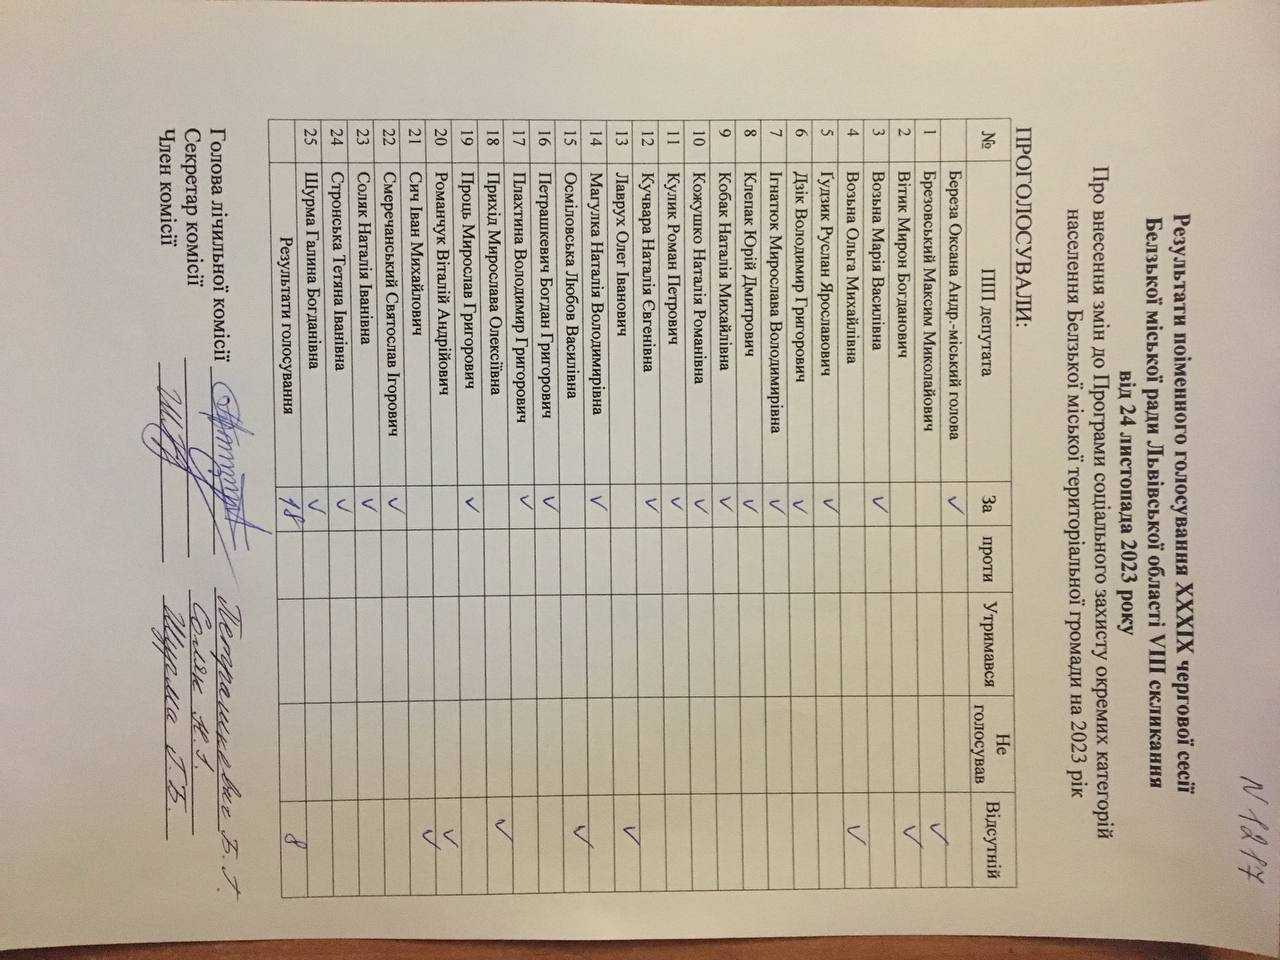 N 1217
Результати поіменного голосування XXXIX чергової сесії
Белзької міської ради Львівської області VIII скликання
від 24 листопада 2023 року
Про внесення змін до Програми соціального захисту окремих категорій
населення Белзької міської територіальної громади на 2023 рік
ПРОГОЛОСУВАЛИ:
№ ППП депутата За проти Утримався Не голосував Відсутній
Береза Оксана Андр.-міський голова ✓
1 Брезовський Максим Миколайович ✓
2 Вітик Мирон Богданович ✓
3 Возьна Марія Василівна ✓
4 Возьна Ольга Михайлівна ✓
5 Гудзик Руслан Ярославович ✓
6 Дзік Володимир Григорович ✓
7 Ігнатюк Мирослава Володимирівна ✓
8 Клепак Юрій Дмитрович ✓
9 Кобак Наталія Михайлівна ✓
10 Кожушко Наталія Романівна ✓
11 Кулик Роман Петрович ✓
12 Кучвара Наталія Євгенівна ✓
13 Лаврух Олег Іванович ✓
14 Магулка Наталія Володимирівна ✓
15 Осміловська Любов Василівна ✓
16 Петрашкевич Богдан Григорович ✓
17 Плахтина Володимир Григорович ✓
18 Прихід Мирослава Олексіївна ✓
19 Проць Мирослав Григорович ✓
20 Романчук Віталій Андрійович ✓
21 Сич Іван Михайлович ✓
22 Смеречанський Святослав Ігорович ✓
23 Соляк Наталія Іванівна ✓
24 Стронська Тетяна Іванівна ✓
25 Шурма Галина Богданівна ✓
Результати голосування 18 8
Голова лічильної комісії Петрашкевич Б. Г.
Секретар комісії Соляк Н. І.
Член комісії Шурма Г. Б.